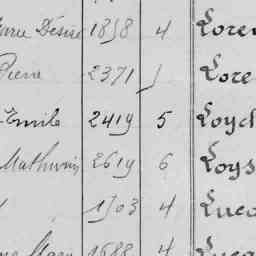 Désiré 1858 4 Loren
Pierre 2371 1 Lore
Emile 2419 5 Loyd
Mathurin 2619 6 Loys
1703 4 Luca
Mary 1688 4 Luca